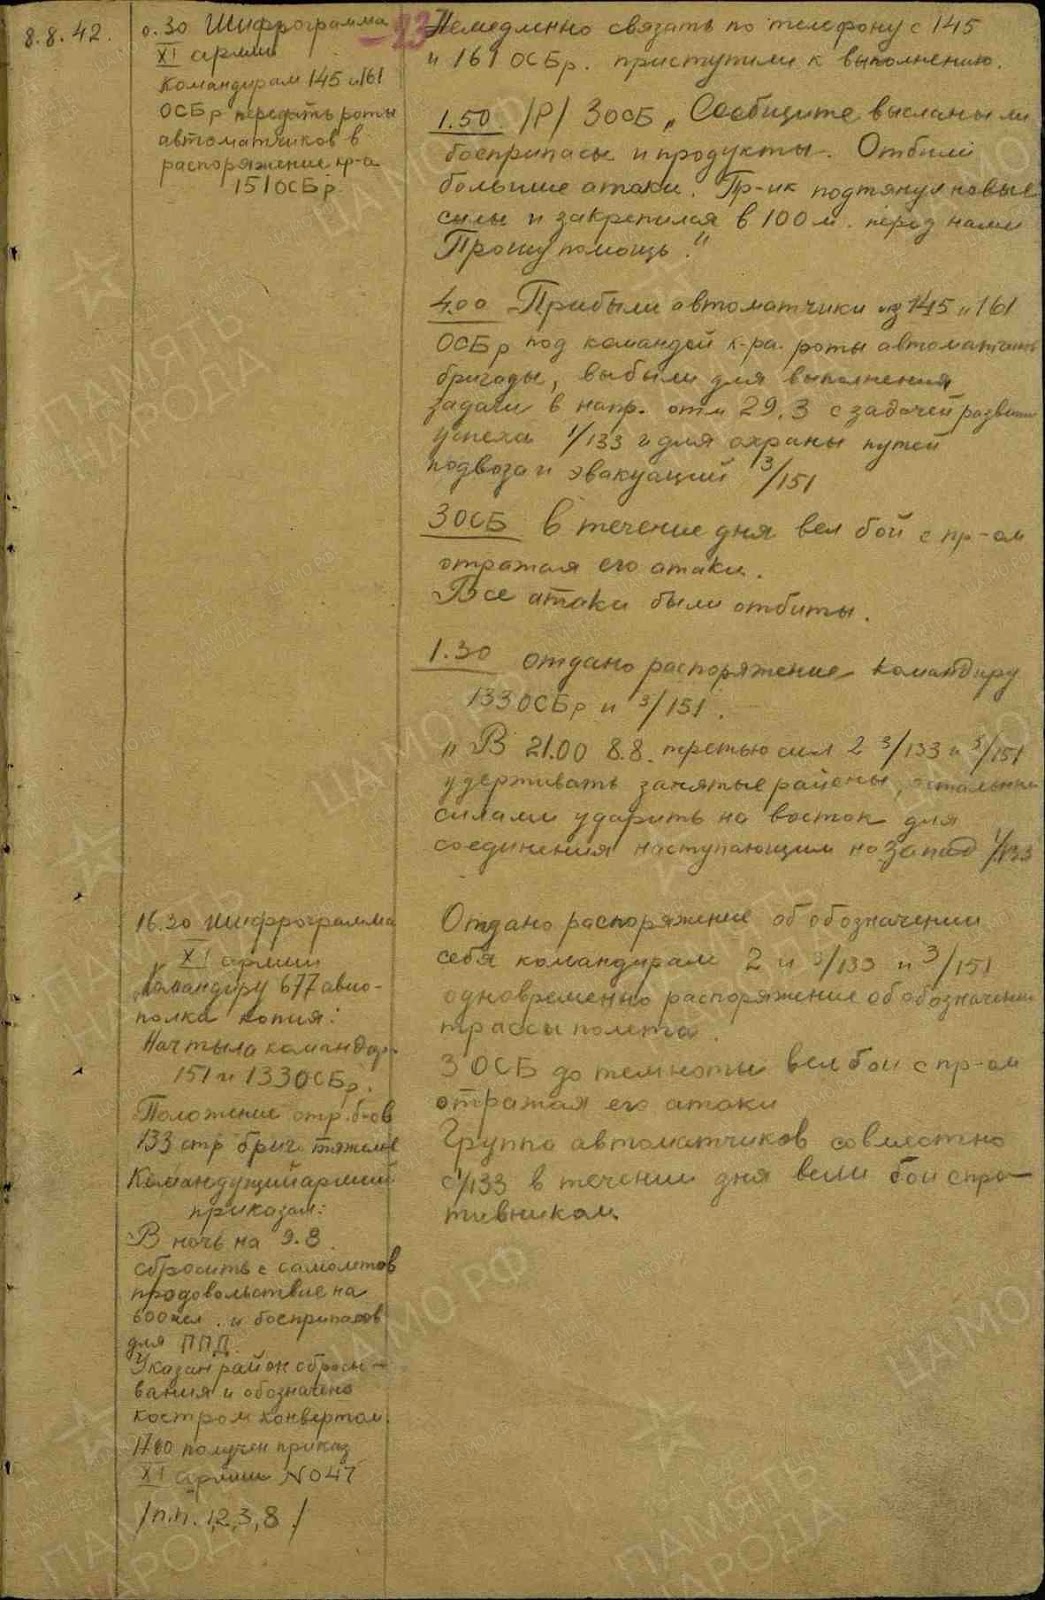 8.8.42.
0.30 Шифрограмма
XI армии
Командирам 145 и 161
ОСБр передать роты
автоматчиков в
распоряжение кр-а
151 ОСБр.
Немедленно связать по телефону с 145
и 161 ОСБр. приступили к выполнению.
1.50 /Р/ 3 ОСБ „Сообщите высланы ли
боеприпасы и продукты. Отбили
большие атаки. Пр-ик подтянул новые
силы и закрепился в 100 м. перед нами
Прошу помощь."
4.00 Прибыли автоматчики из 145 и 161
ОСБр под командой к-ра. роты автоматчиков
бригады, выбыли для выполнения
задачи в напр. отм 29,3 с задачей развития
успеха 1/133 и для охраны путей
подвоза и эвакуаций 3/151
3 ОСБ в течение дня вел бой с пр-ом
отражая его атаки.
Все атаки были отбиты.
1.30 отдано распоряжение командиру
133 ОСБр и 3/151.
„В 21.00 8.8. третью сил 2 3/133 и 3/151
удерживать занятые районы, остальными
силами ударить на восток для
соединения наступающим на запад 1/133
16.30 Шифрограмма
XI армии
Командиру 677 авио-
полка копия:
Нач тыла командир.
151 и 133 ОСБр.
Положение отр. б-ов
133 стр бриг тяжелое
Командущий армией
приказал:
В ночь на 9.8
сбросить с самолетов
продовольствие на
600 чел. и боеприпасов
для ППД.
Указан район сбрасы-
вания и обозначено
костром конвертом.
1700 получен приказ
XI армии №047
/п.п. 1,2,3,8/
Отдано распоряжение об обозначении
себя командирам 2 и 3/133 и 3/151
одновременно распоряжение об обозначении
трассы полета.
3 ОСБ до темноты вел бои с пр-ом
отражая его атаки
Группа автоматчиков совместно
с 1/133 в течении дня вели бои с про-
тивником.
ПАМЯТЬ НАРОДА
ЦАМО РФ